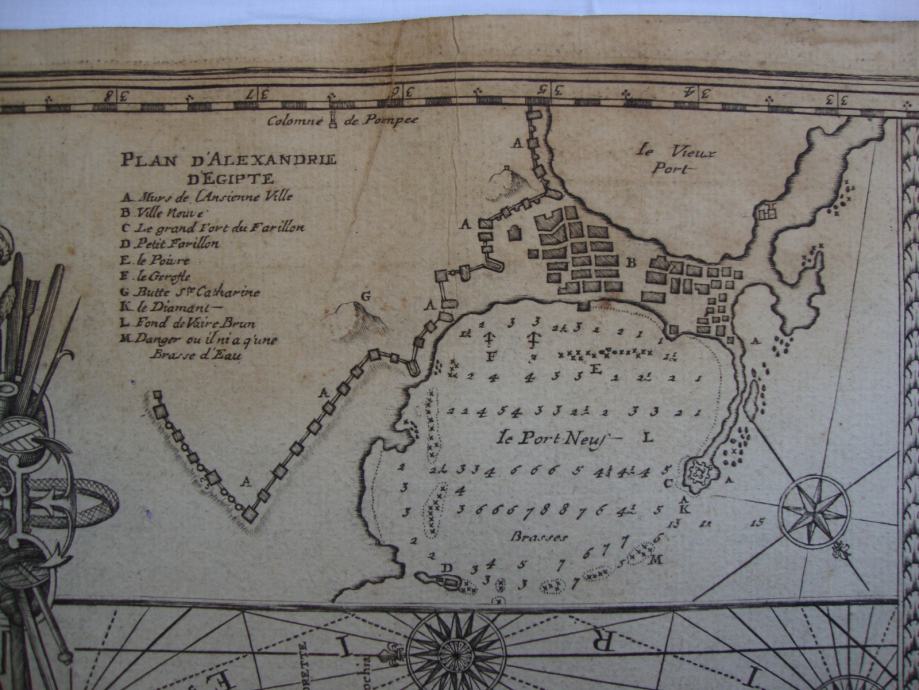 8 3
7 3
6 3
5 3
4 3
3 3
Colomne de Pompee
PLAN D'ALEXANDRIE
D'EGIPTE
A Murs de l'Ansienne Ville
B Ville Neuve
C Le grand Fort du Farillon
D Petit Farillon
E le Poivre
F le Gerofle
G Butte Ste Catharine
K le Diamant
L Fond de Vaire Brun
M Danger ou il ni a q'une
Brasse d'Eau
le Vieux
Port
A
A
A
A
A
G
B
2 3 3 2½ 3 2 2 1
F
E
4 2 4 4 3 3 3 2 2½ 2 1
2 2 4 5 4 3 3 2½ 2 3 3 2 1
le Port Neuf L
2 2½ 3 3 4 6 6 6 5 4½ 4½ 4 5
C
A
A
K
3 4
3 3 6 6 6 7 8 8 7 6 4½ 5 6
13 11 15
2 Brasses
2 3 4 5 7 6 7 7
D 3 3 3 7 5 M
I R I